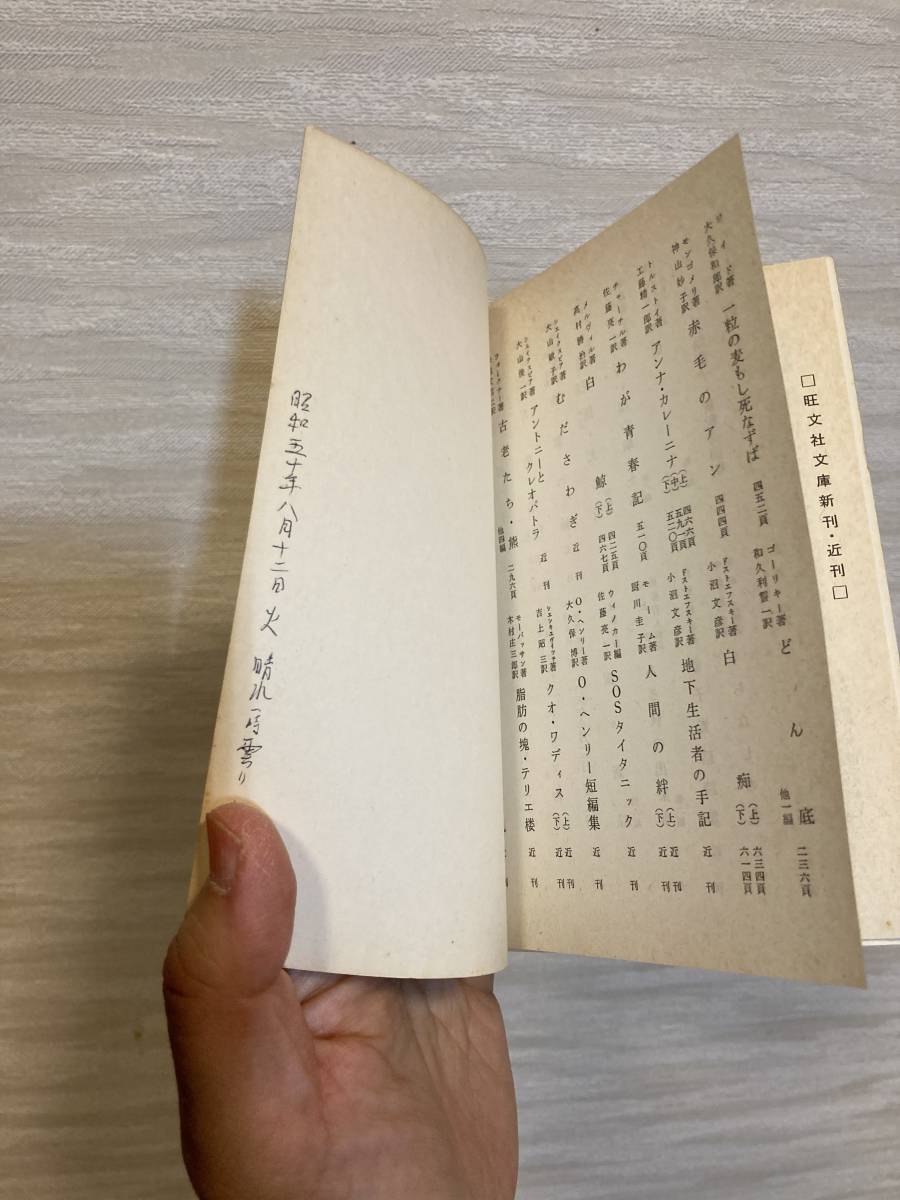 □旺文社文庫新刊・近刊□
リード著
大久保和郎訳
一粒の麦もし死なずば
四五二頁
モンゴメリ著
神山妙子訳
赤毛のアン
四四四頁
トルストイ著
工藤精一郎訳
アンナ・カレーニナ
(上)
(中)
(下)
四六六頁
五九一頁
五二〇頁
チャーチル著
佐藤亮一訳
わが青春記
五一〇頁
メルヴィル著
高村勝治訳
白鯨
(上)
(下)
四二五頁
四六七頁
シェイクスピア著
大山敏子訳
むださわぎ
近刊
シェイクスピア著
大山俊一訳
アントニーとクレオパトラ
近刊
フォークナー著
古老たち・熊
他四編
二九六頁
ゴーリキー著
和久利誓一訳
どん底
他一編
二三六頁
ドストエフスキー著
小沼文彦訳
白痴
(上)
(下)
六三四頁
六一四頁
ドストエフスキー著
小沼文彦訳
地下生活者の手記
近刊
モーム著
厨川圭子訳
人間の絆
(上)
(下)
近刊
近刊
ウィノカー編
佐藤亮一訳
SOSタイタニック
近刊
O・ヘンリー著
大久保博訳
O・ヘンリー短編集
近刊
シェンキエヴィッチ著
吉上昭三訳
クオ・ワディス
(上)
(下)
近刊
近刊
モーパッサン著
木村庄三郎訳
脂肪の塊・テリエ楼
近刊
昭和五十年八月十二日 火 晴れ一時曇り